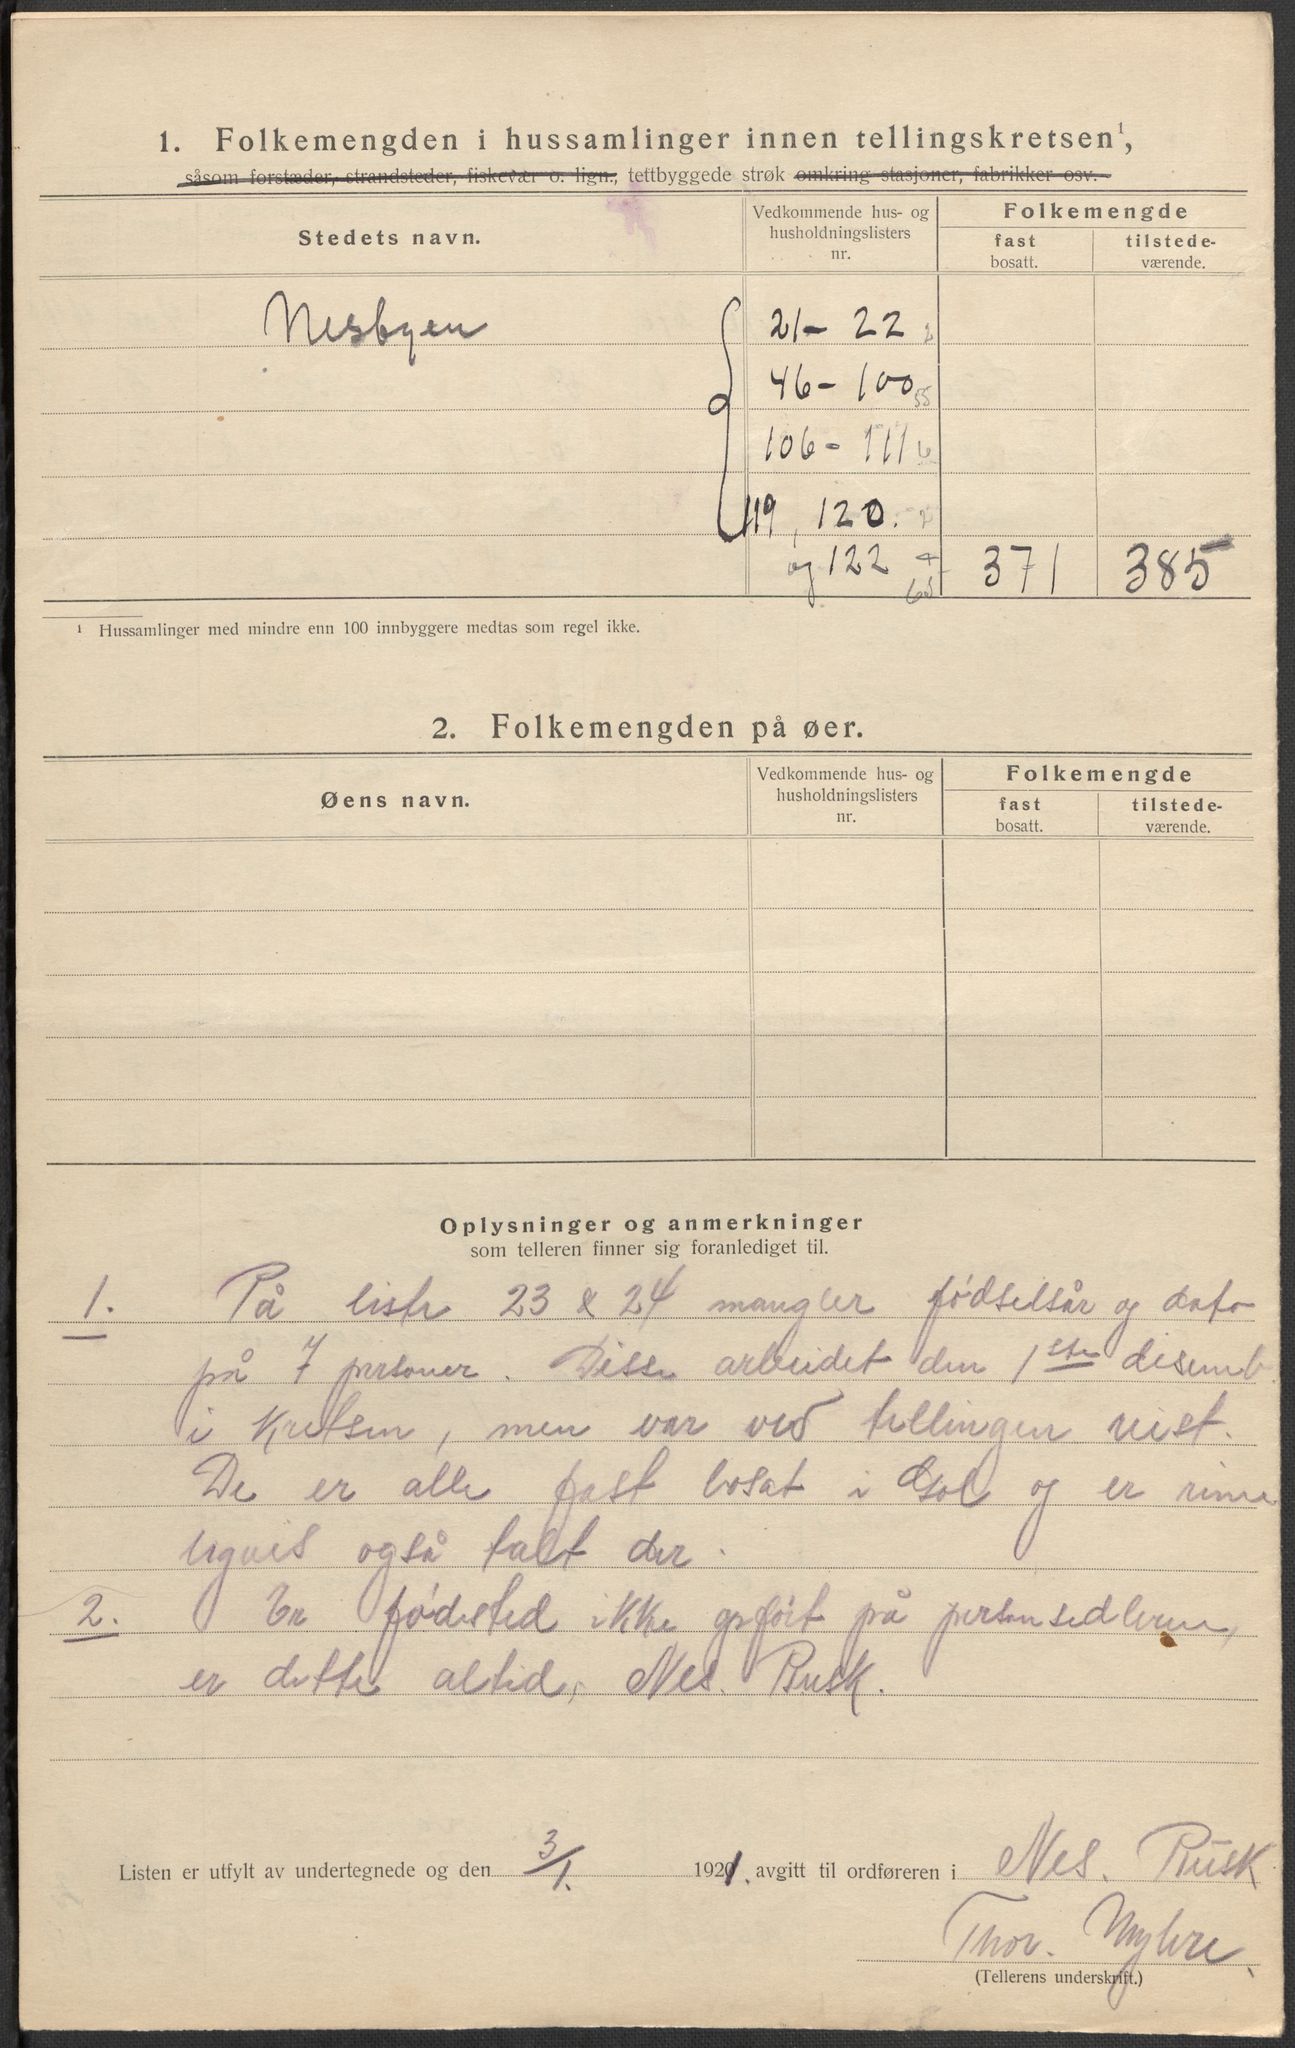 1. Folkemengden i hussamlinger innen tellingskretsen¹,
såsom forstæder, strandsteder, fiskevær o. lign., tettbyggede strøk omkring stasjoner, fabrikker osv.
Stedets navn.
Vedkommende hus- og husholdningslisters nr.
Folkemengde
fast bosatt.
tilstedeværende.
Nesbyen
21 - 22 2
46 - 100 55
106 - 111 6
119, 120. 2
og 122 371 385
¹ Hussamlinger med mindre enn 100 innbyggere medtas som regel ikke.
2. Folkemengden på øer.
Øens navn.
Vedkommende hus- og husholdningslisters nr.
Folkemengde
fast bosatt.
tilstedeværende.
Oplysninger og anmerkninger
som telleren finner sig foranlediget til.
1. På liste 23 & 24 mangler fødselsår og dato
på 7 personer. Disse arbeidet den 1ste desemb.
i kretsen, men var ved tellingen reist.
De er alle fast bosat i Gol og er rime
ligvis også talt der.
2. Er fødested ikke opført på personsedlerne,
er dette altid, Nes. Busk.
Listen er utfylt av undertegnede og den 3/1. 1921. avgitt til ordføreren i Nes. Busk
Thor. Myhre.
(Tellerens underskrift.)